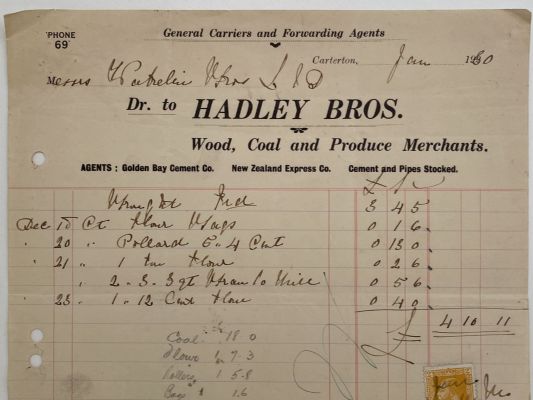 'PHONE 69
General Carriers and Forwarding Agents
Carterton, Jan 1930
Messrs Bros Ltd
Dr. to HADLEY BROS.
Wood, Coal and Produce Merchants.
AGENTS : Golden Bay Cement Co. New Zealand Express Co. Cement and Pipes Stocked.
£ s d
Brought Fwd 3 4 5
Dec 18 Ct Flour Bags 0 1 6
" 20 " Pollard 5. 4 Cwt 0 13 0
" 21 " 1 Flour 0 2 6
" " 2. 3. 3 qr Bran to Mill 0 5 6
" 23 " 1. 12 Cwt Flour 0 4 0
£ 4 10 11
Coal 18 0
Flour 1 7 3
1 5 8
Bags 1.6